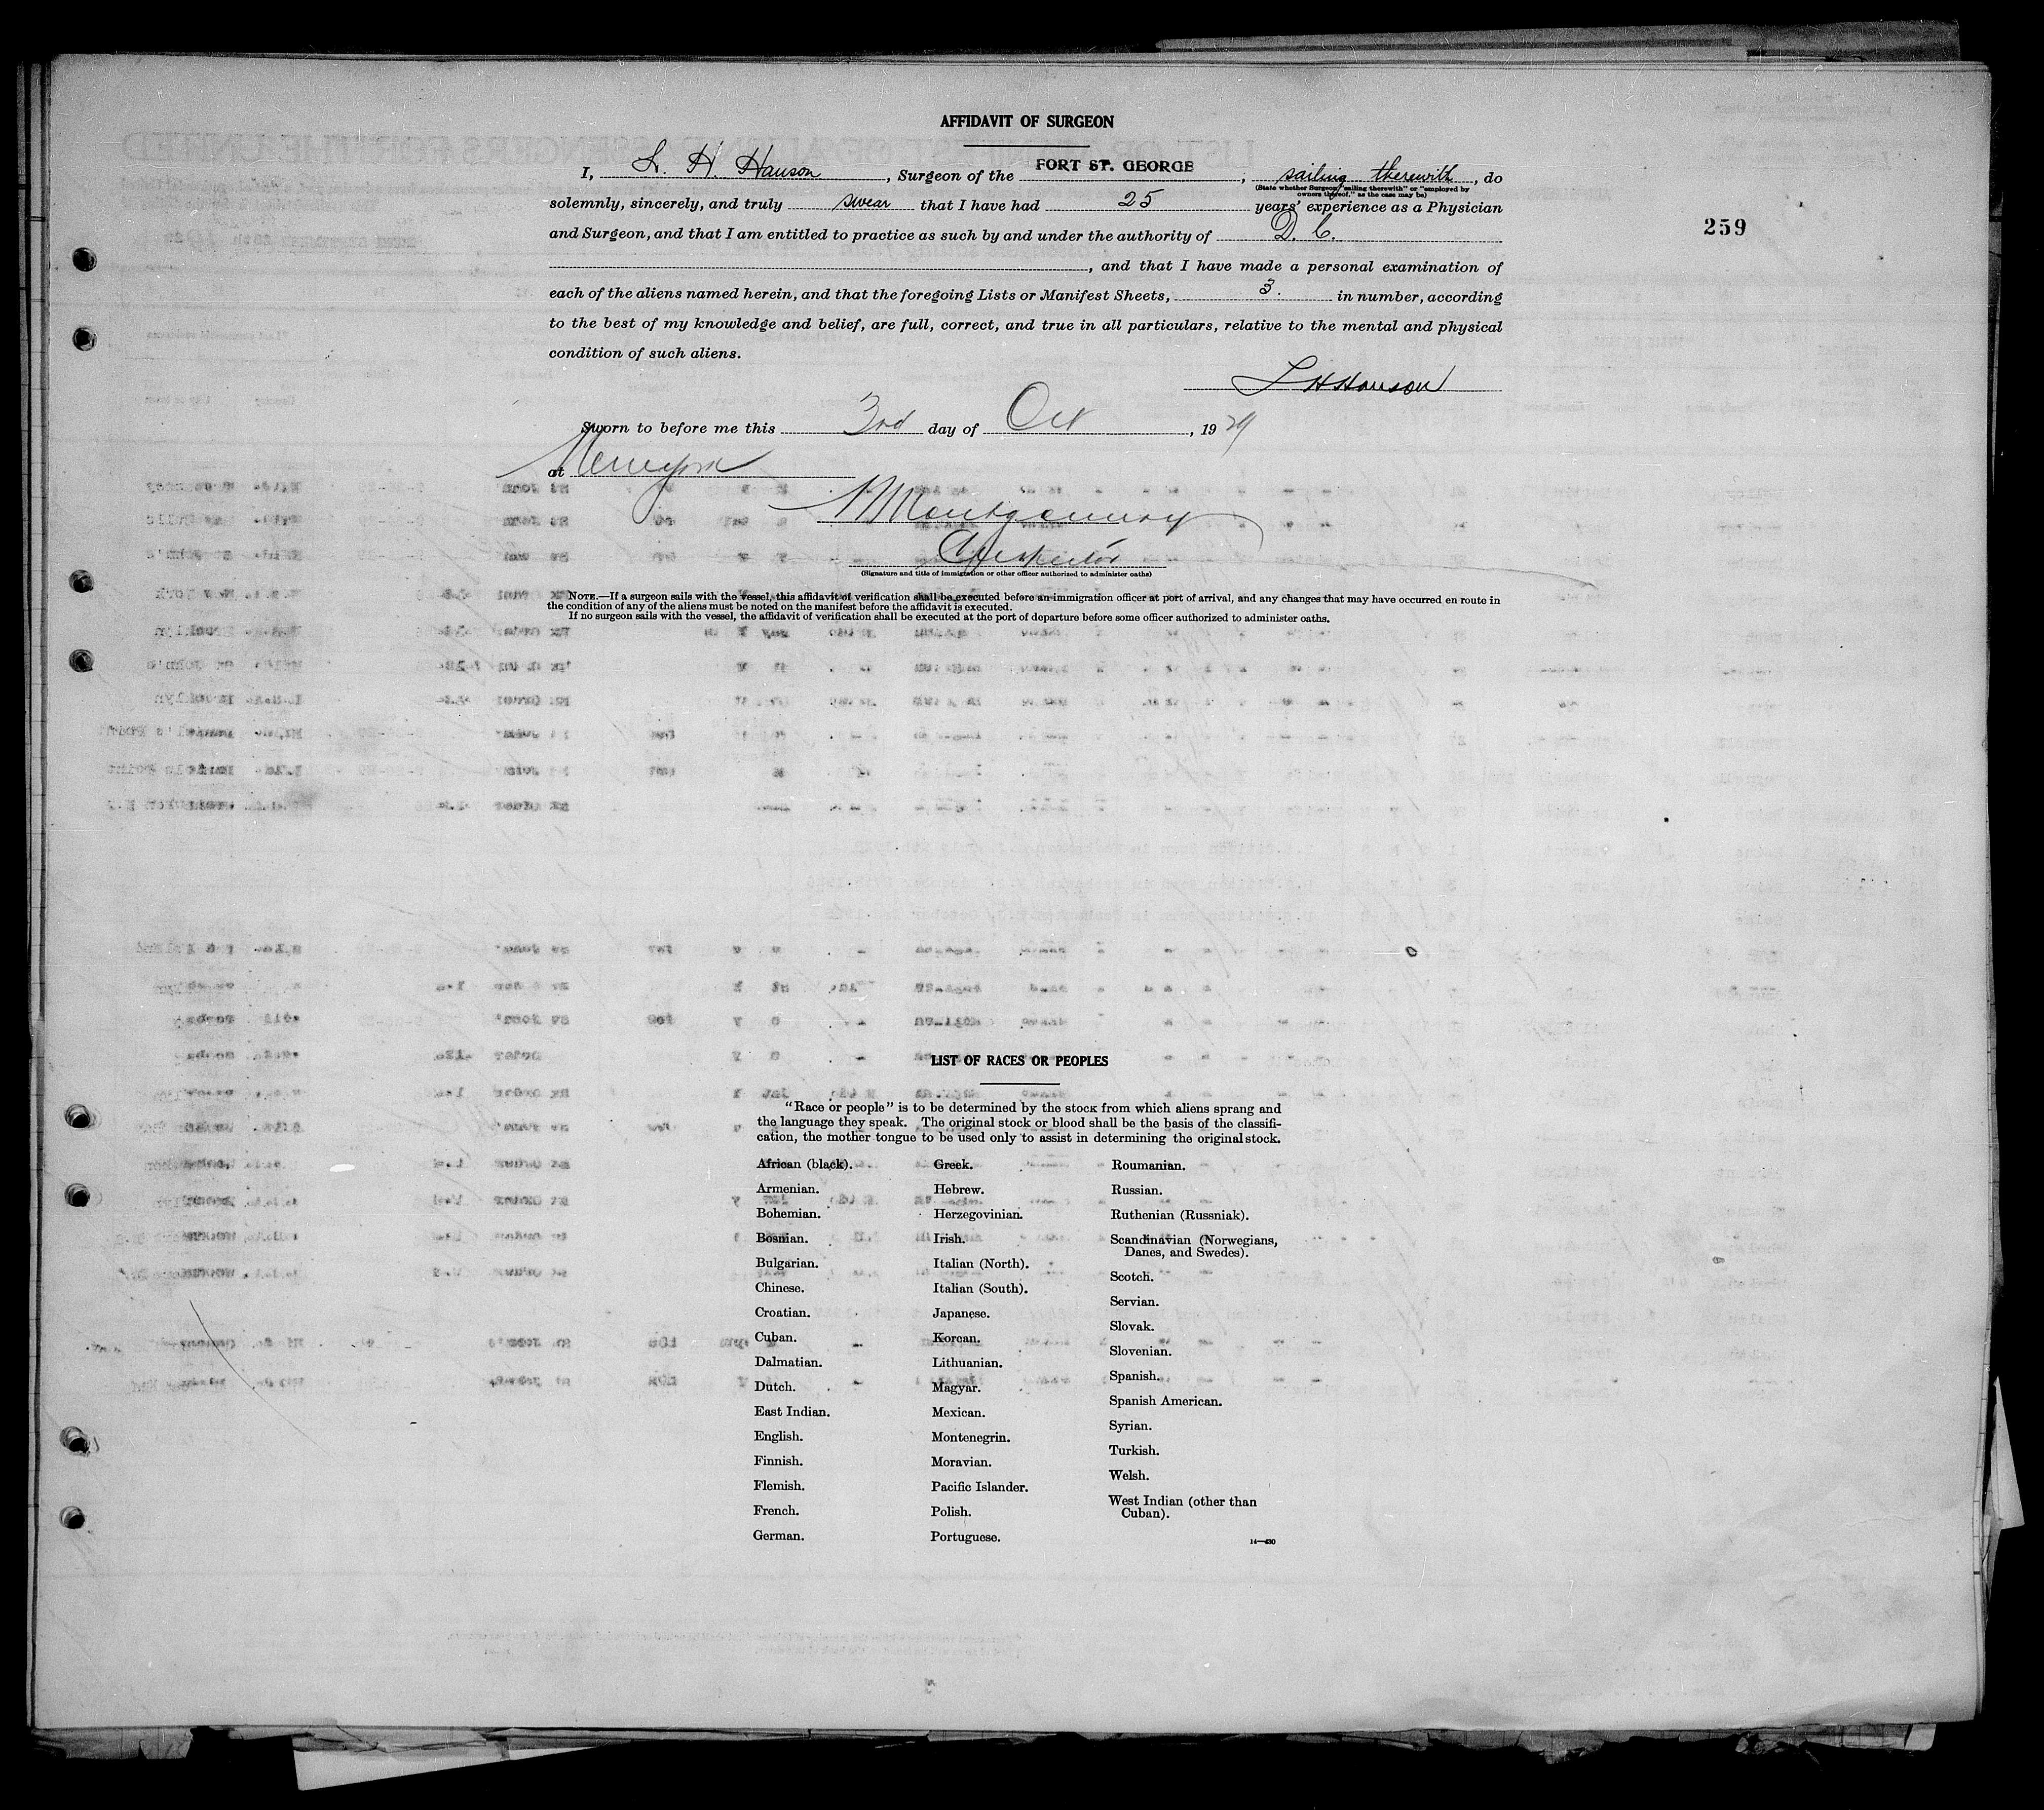 AFFIDAVIT OF SURGEON
I, L. H. Hanson, Surgeon of the FORT ST. GEORGE, sailing therewith, do
(State whether Surgeon "sailing therewith" or "employed by
owners thereof," as the case may be)
solemnly, sincerely, and truly swear that I have had 25 years' experience as a Physician
259
and Surgeon, and that I am entitled to practice as such by and under the authority of D. C.
, and that I have made a personal examination of
each of the aliens named herein, and that the foregoing Lists or Manifest Sheets, 3. in number, according
to the best of my knowledge and belief, are full, correct, and true in all particulars, relative to the mental and physical
condition of such aliens.
L H Hanson
Sworn to before me this 3rd day of Oct, 1929
at New York
Montgomery
Inspector
(Signature and title of immigration or other officer authorized to administer oaths)
NOTE.—If a surgeon sails with the vessel, this affidavit of verification shall be executed before an immigration officer at port of arrival, and any changes that may have occurred en route in
the condition of any of the aliens must be noted on the manifest before the affidavit is executed.
If no surgeon sails with the vessel, the affidavit of verification shall be executed at the port of departure before some officer authorized to administer oaths.
LIST OF RACES OR PEOPLES
"Race or people" is to be determined by the stock from which aliens sprang and
the language they speak. The original stock or blood shall be the basis of the classifi-
cation, the mother tongue to be used only to assist in determining the original stock.
African (black).
Armenian.
Bohemian.
Bosnian.
Bulgarian.
Chinese.
Croatian.
Cuban.
Dalmatian.
Dutch.
East Indian.
English.
Finnish.
Flemish.
French.
German.
Greek.
Hebrew.
Herzegovinian.
Irish.
Italian (North).
Italian (South).
Japanese.
Korean.
Lithuanian.
Magyar.
Mexican.
Montenegrin.
Moravian.
Pacific Islander.
Polish.
Portuguese.
Roumanian.
Russian.
Ruthenian (Russniak).
Scandinavian (Norwegians,
Danes, and Swedes).
Scotch.
Servian.
Slovak.
Slovenian.
Spanish.
Spanish American.
Syrian.
Turkish.
Welsh.
West Indian (other than
Cuban).
14—430